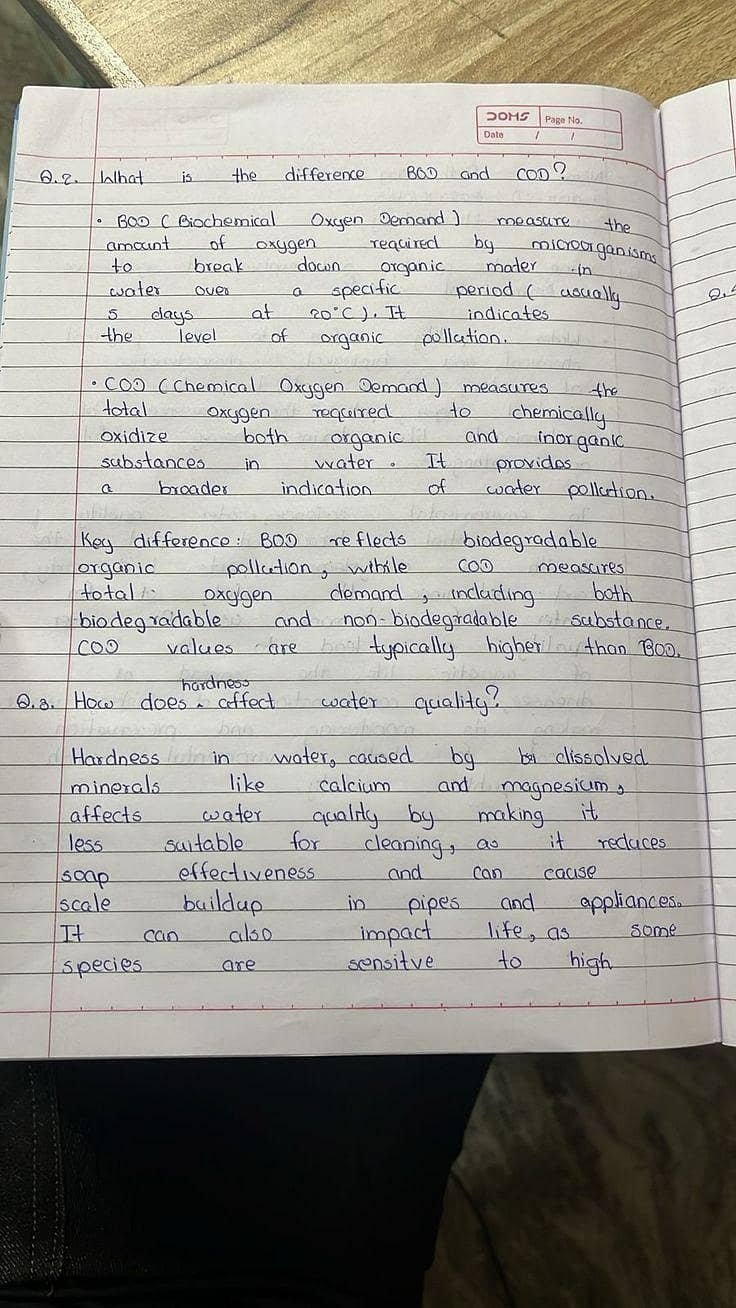 DOMS Page No.
Date / /
Q.2. What is the difference BOD and COD?
• BOD ( Biochemical Oxygen Demand ) measure the
amount of oxygen required by microorganisms
to break down organic mater in
water over a specific period ( usually
5 days at 20°C ). It indicates
the level of organic pollution.
• COD ( Chemical Oxygen Demand ) measures the
total oxygen required to chemically
oxidize both organic and inorganic
substances in water. It provides
a broader indication of water pollution.
Key difference: BOD reflects biodegradable
organic pollution, while COD measures
total oxygen demand, including both
biodegradable and non-biodegradable substance.
COD values are typically higher than BOD.
hardness
Q.3. How does ^ affect water quality?
Hardness in water, caused by dissolved
minerals like calcium and magnesium,
affects water quality by making it
less suitable for cleaning, as it reduces
soap effectiveness and can cause
scale buildup in pipes and appliances.
It can also impact life, as some
species are sensitve to high